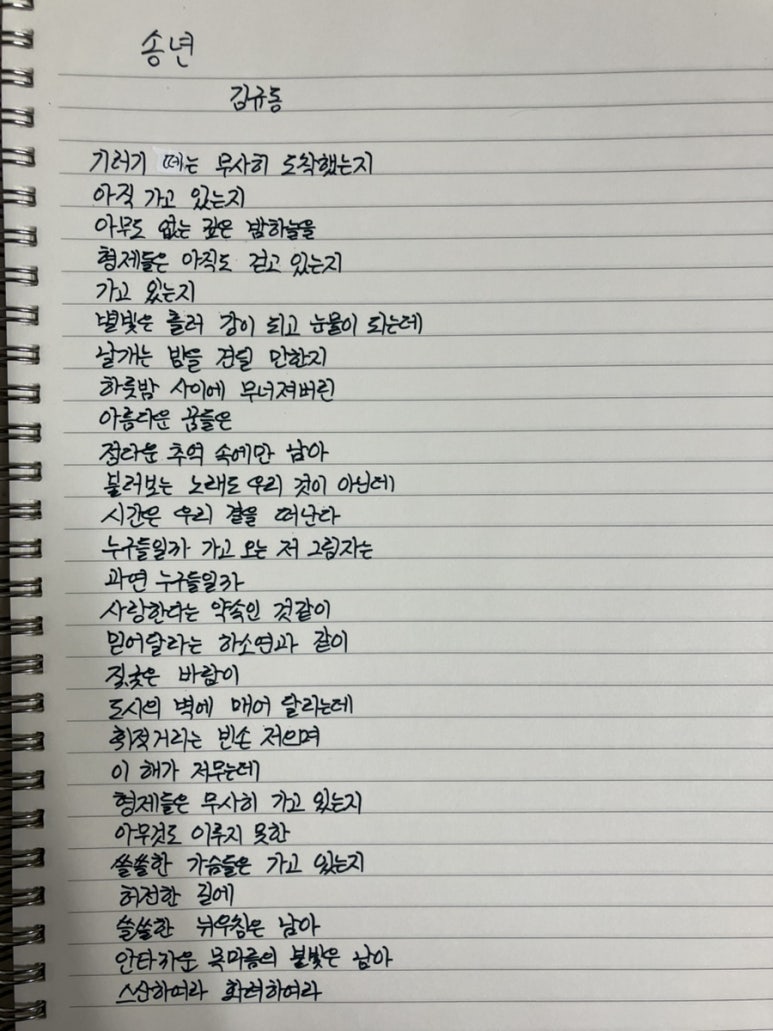 송년
김규동
기러기 떼는 무사히 도착했는지
아직 가고 있는지
아무도 없는 깊은 밤하늘을
형제들은 아직도 걷고 있는지
가고 있는지
별빛은 흘러 강이 되고 눈물이 되는데
날개는 밤을 견딜 만한지
하룻밤 사이에 무너져버린
아름다운 꿈들은
정다운 추억 속에만 남아
불러보는 노래도 우리 것이 아닌데
시간은 우리 곁을 떠난다
누구들일까 가고 오는 저 그림자는
과연 누구들일까
사랑한다는 약속인 것같이
믿어달라는 하소연과 같이
짓궂은 바람이
도시의 벽에 매어 달리는데
휘적거리는 빈손 저으며
이 해가 저무는데
형제들은 무사히 가고 있는지
아무것도 이루지 못한
쓸쓸한 가슴들은 가고 있는지
허전한 길에
쓸쓸한 뉘우침은 남아
안타까운 목마름의 불빛은 남아
스산하여라 화려하여라